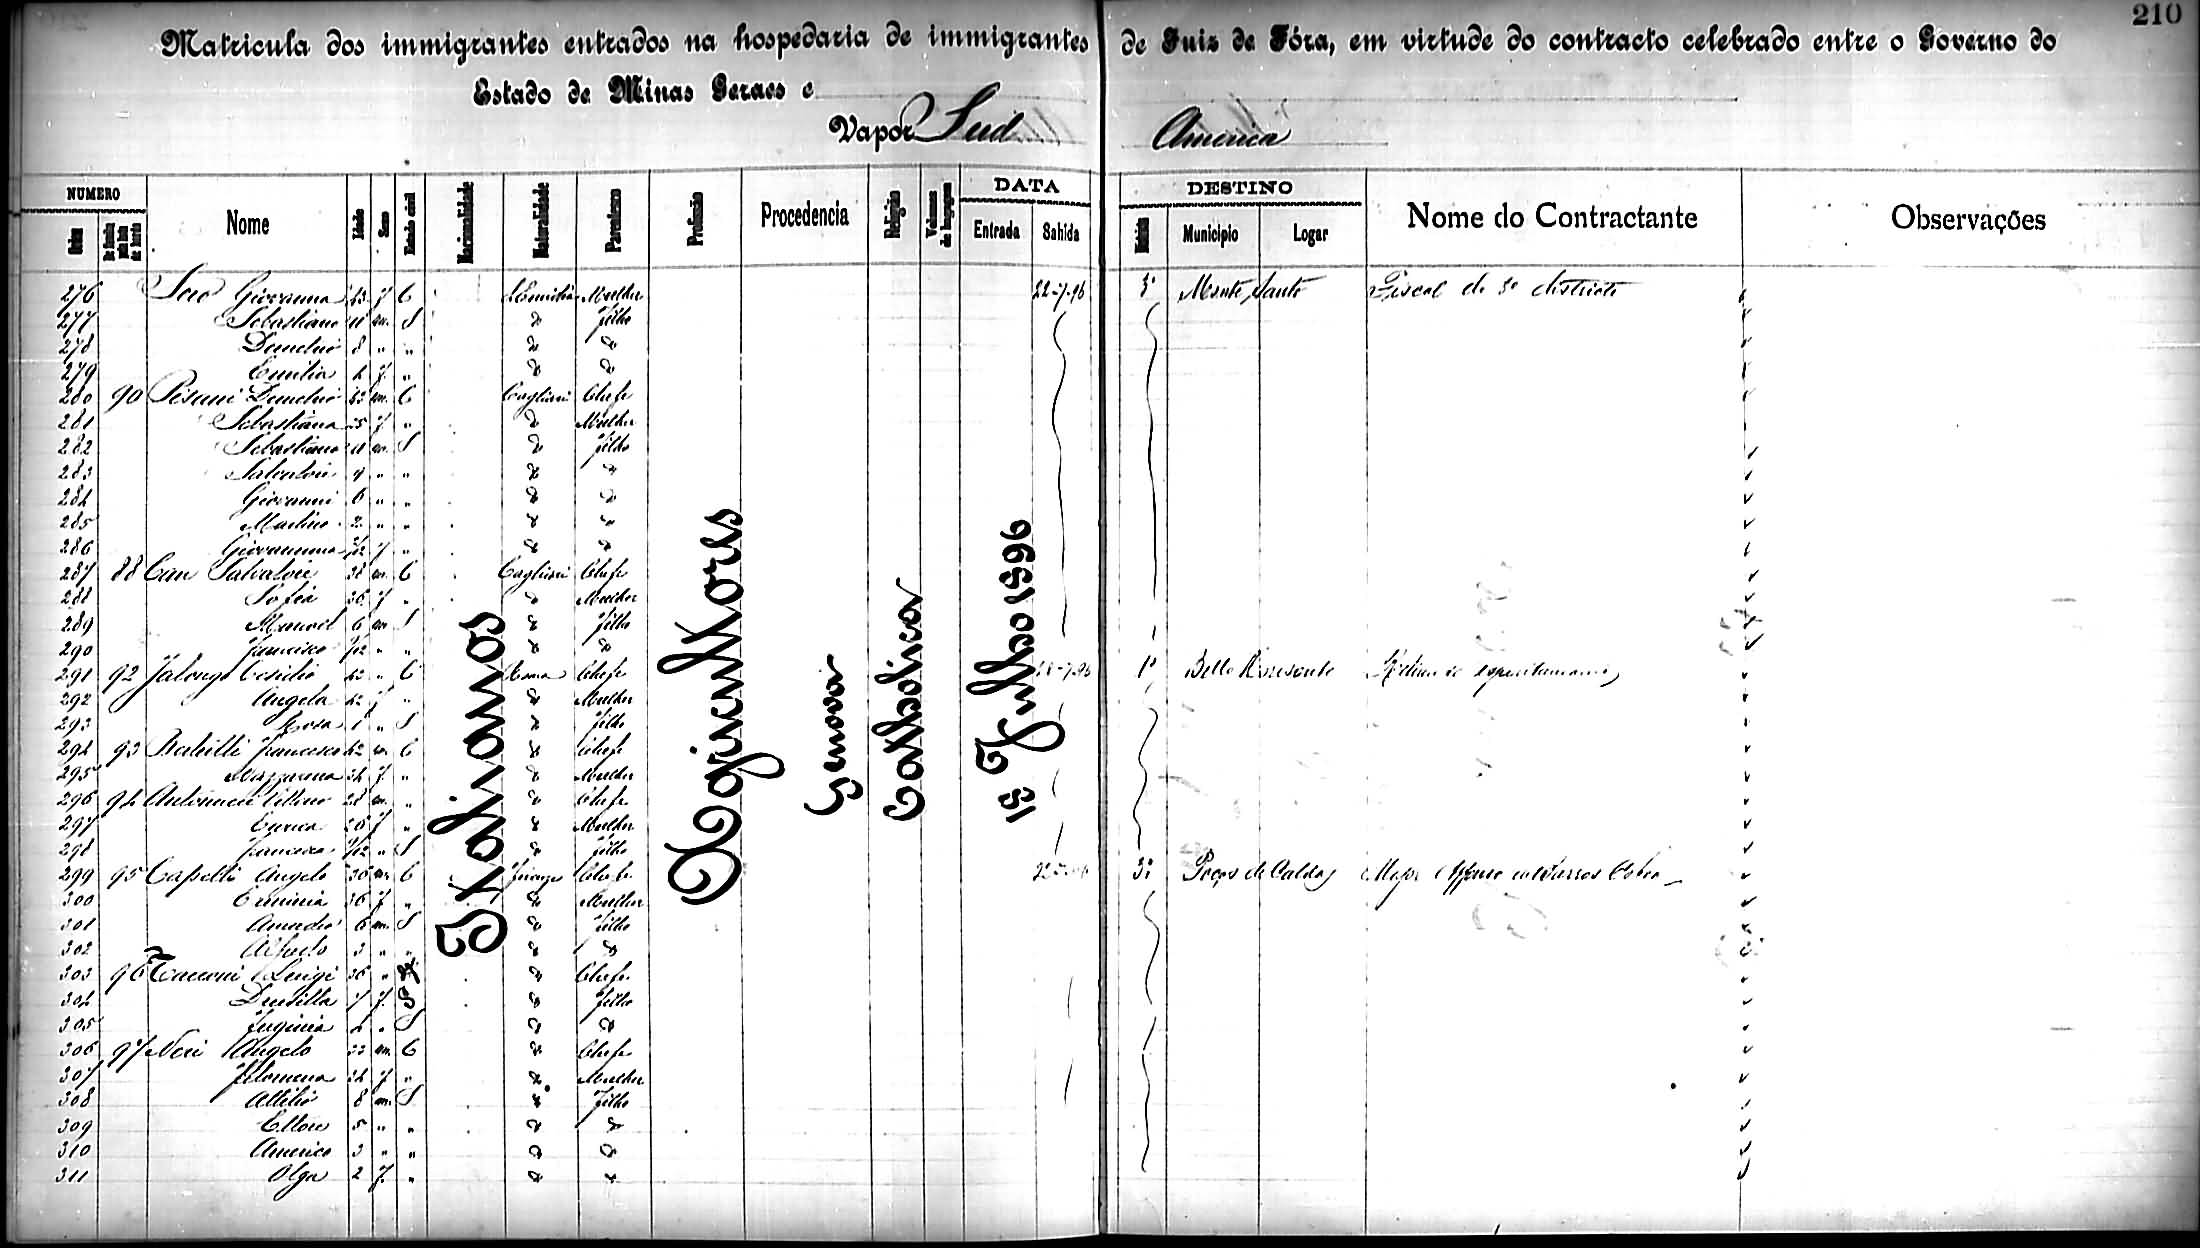 210
Matricula dos immigrantes entrados na hospedaria de immigrantes de Juiz de Fóra, em virtude do contracto celebrado entre o Governo do
Estado de Minas Geraes e
Vapor Sud America
NUMERO Nome Idade Sexo Estado civil Nacionalidade Naturalidade Parentesco Profissão Procedencia Religião Volumes de bagagem DATA DESTINO Nome do Contractante Observações
Ordem Entrada Sahida Municipio Logar
Italianos Agricultores Genova Catholica 15 Julho 1896
276 Giovanna 43 f C Mulher 22-7-96 3º Monte Santo Fiscal do 3º districto
277 Sebastiano 11 m. S " filho
278 Demetrio 8 " " " "
279 Emilia 4 f. " " "
280 90 Pisani Demetrio 42 m. C Cagliari Chefe
281 Sebastiana 25 f " " Mulher
282 Sebastiano 11 m. S " filho
283 Salvatore 9 " " " "
284 Giovanni 6 " " " "
285 Martino 2 " " " "
286 Giovannina /12 f " " "
287 88 Cau Salvatore 38 m. C Cagliari Chefe
288 Sofia 36 f " " Mulher
289 Manoel 6 m S " filho
290 Francisco /12 " " " "
291 92 Jalongo 42 " C Roma Chefe 1º Bello
292 Angela 42 f " " Mulher
293 Rosa 1 " S " filho
294 93 Francesco 42 m. C " Chefe
295 Nazzarena 34 f. " " Mulher
296 94 28 m. " " Chefe
297 Enrica 26 f " " Mulher
298 Francesca /12 " S " filho
299 95 Capelli Angelo 36 m. C Firenze Chefe 3º Poços de Caldas Major
300 Erminia 36 f " " Mulher
301 Amedeo 6 m. S " filho
302 Alfredo 3 " " " "
303 96 Tacconi Luigi 36 " " Chefe
304 Drusilla 7 f. S " filho
305 4 " S " "
306 97 Neri Angelo 33 m. C " Chefe
307 Filomena 34 f " " Mulher
308 Attilio 8 m. S " filho
309 Ettore 5 " " " "
310 Americo 3 " " " "
311 Olga 2 f. " " "